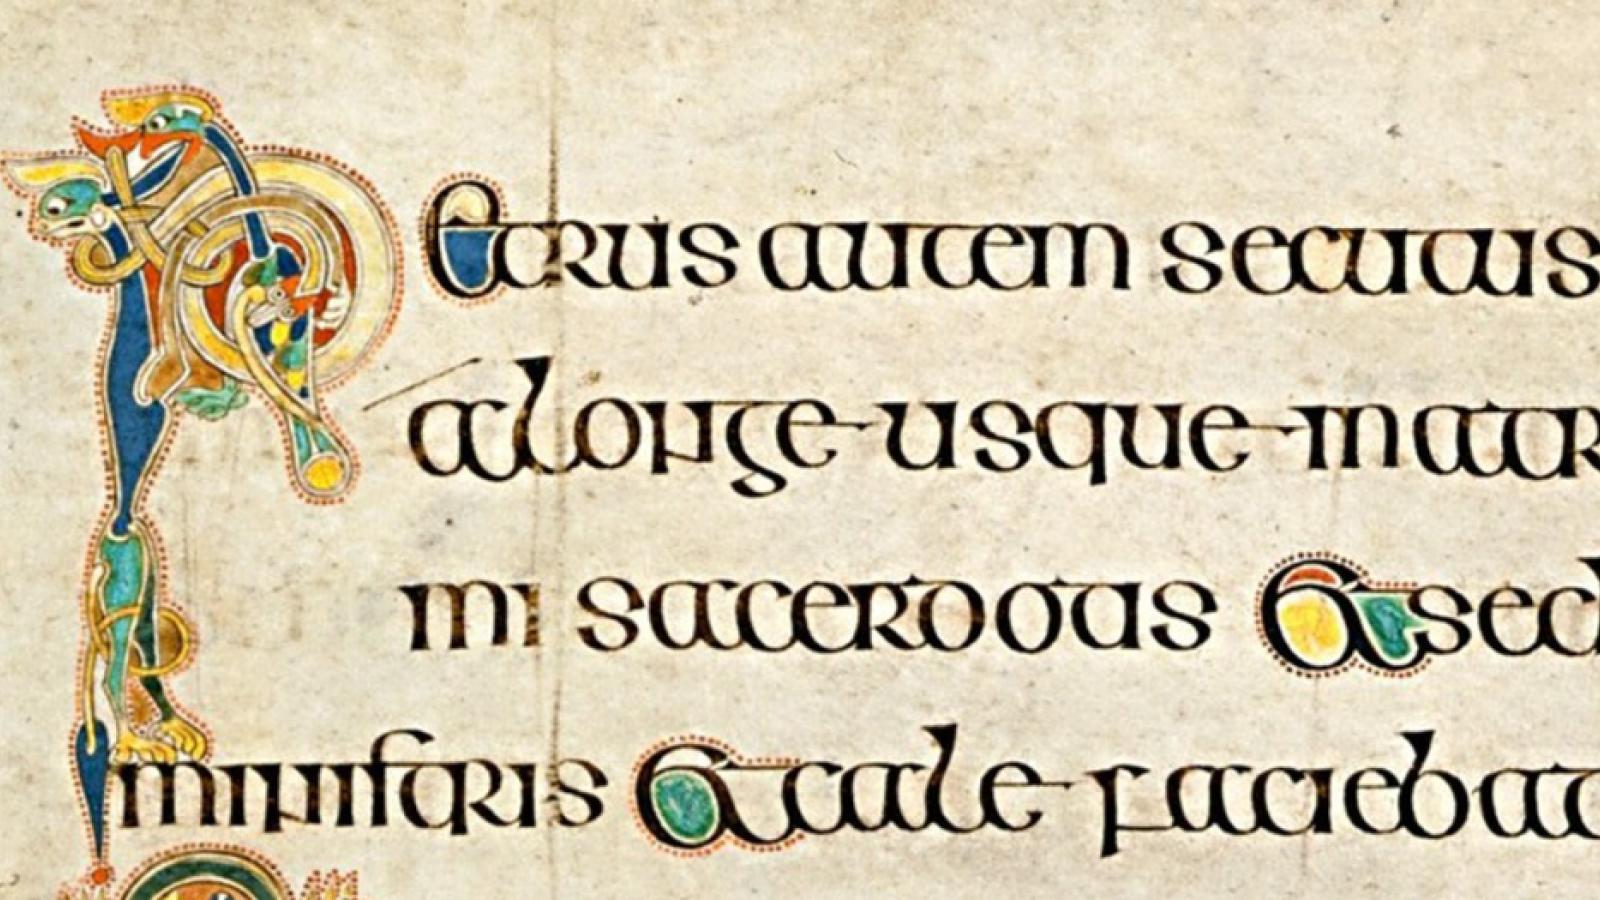 Petrus autem secutus
a longe usque in atr
mi sacerdotas Et sed
ministris Et cale faciebat